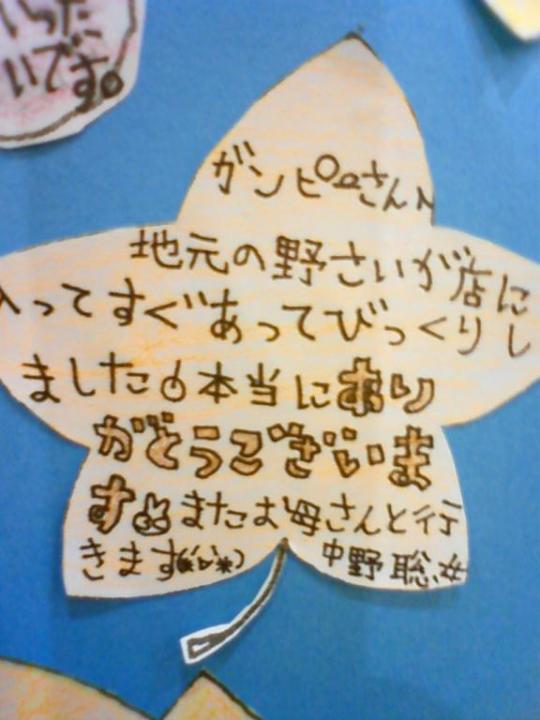 いった
いです。
ガンピーさんへ
地元の野さいが店に
入ってすぐあってびっくりし
ました。本当にあり
がとうございま
す またお母さんと行
きます(*^v^*) 中野聡